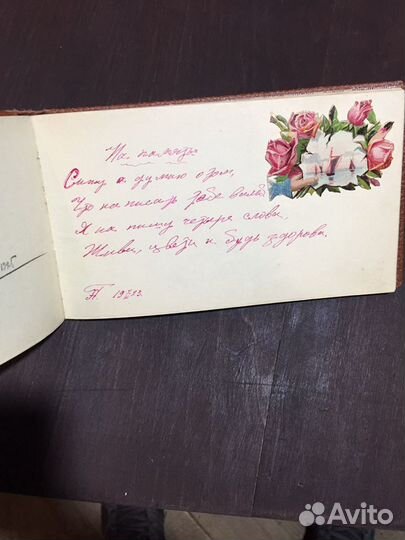 На память
Сижу и думаю о том,
Что написать тебе в альбом
Я напишу четыре слова,
Живи, цвети и будь здорова.
Avito